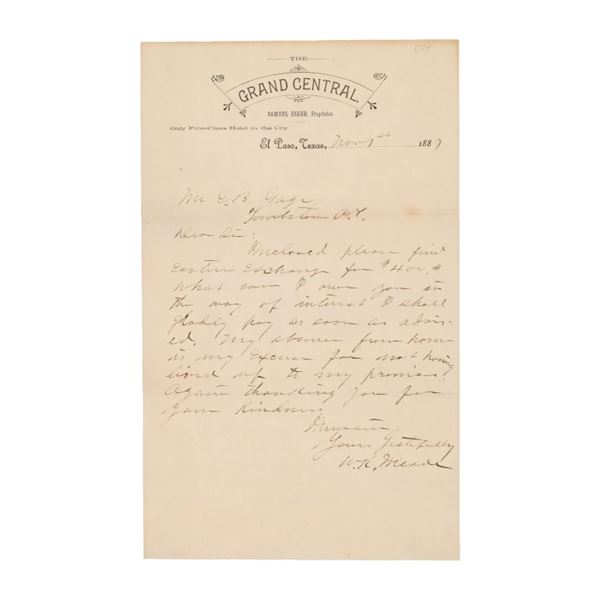 THE
GRAND CENTRAL.
SAMUEL ECKER, Proprietor.
Only First-Class Hotel in the City
El Paso, Texas, Nov 1st 1887
Mr E. B. Gage
Tombstone A.T.
Dear Sir:
Enclosed please find
Eastern Exchange for $400.
What ever I owe you in
the way of interest I shall
gladly pay as soon as advis-
ed. My absence from home
is my excuse for not having
lived up to my promise.
Again thanking you for
your kindness
I remain
Yours Gratefully
W. K. Meade